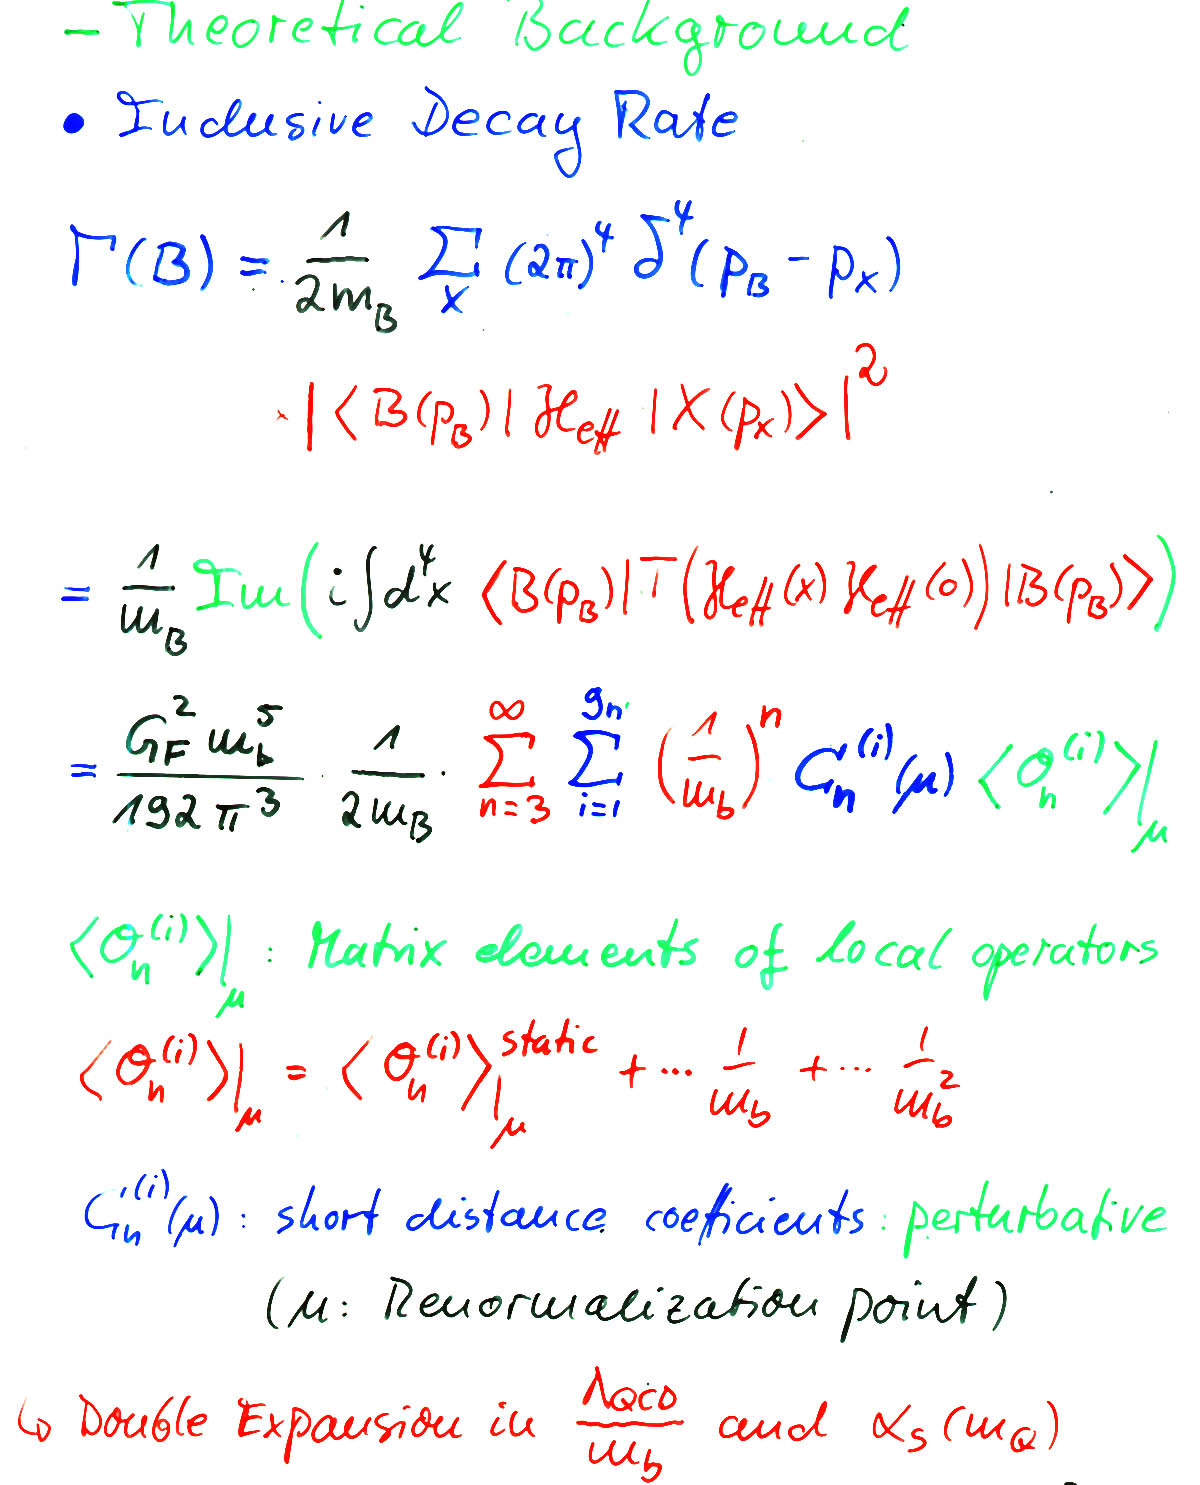 – Theoretical Background
• Inclusive Decay Rate
Γ(B) = 1/(2m_B) Σ_X (2π)^4 δ^4(p_B − p_X)
· |⟨B(p_B)| ℋ_eff |X(p_X)⟩|^2
= 1/m_B Im( i ∫d^4x ⟨B(p_B)|T(ℋ_eff(x) ℋ_eff(0))|B(p_B)⟩ )
= (G_F^2 m_b^5)/(192 π^3) · 1/(2m_B) · Σ_{n=3}^{∞} Σ_{i=1}^{g_n} (1/m_b)^n C_n^{(i)}(μ) ⟨O_n^{(i)}⟩|_μ
⟨O_n^{(i)}⟩|_μ : Matrix elements of local operators
⟨O_n^{(i)}⟩|_μ = ⟨O_n^{(i)}⟩|_μ^{static} + ... 1/m_b + ... 1/m_b^2
C_n^{(i)}(μ) : short distance coefficients : perturbative
(μ: Renormalization point)
↳ Double Expansion in Λ_QCD/m_b and α_s(m_Q)